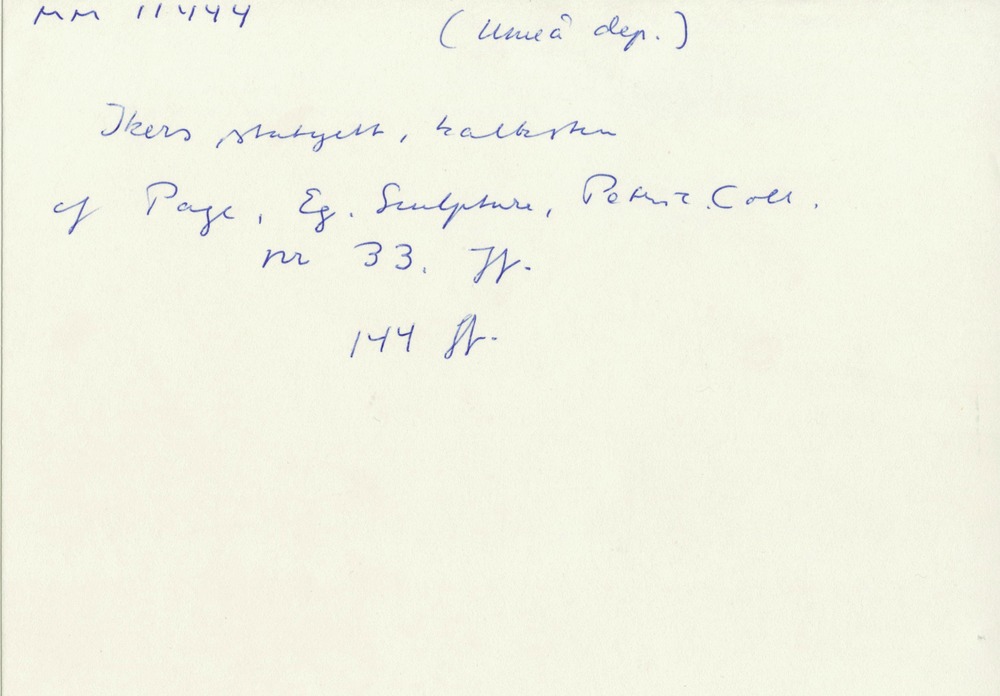 MM 11444 (Umeå dep.)
Ikers statyett, kalksten
cf Page, Eg. Sculpture, Petrie Coll.
nr 33. ff.
144 ff.